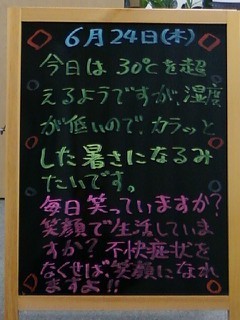 6月24日(木)
今日は30℃を超
えるようですが、湿度
が低いので、カラッと
した暑さになるみ
たいです。
毎日笑っていますか?
笑顔で生活していま
すか? 不快症状を
なくせば、笑顔になれ
ますよ!!